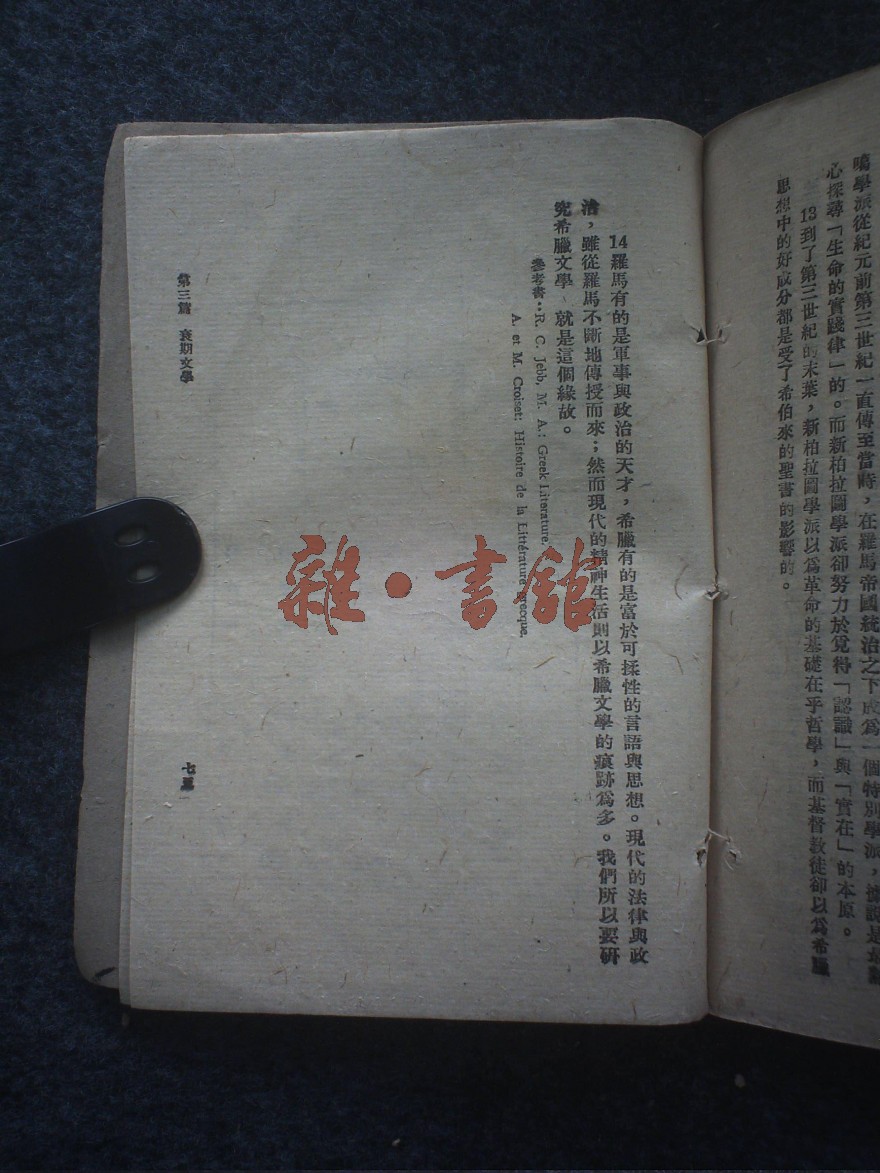 噶學派從紀元前第三世紀一直傳至當時，在羅馬帝國統治之下成為一個特別學派，據說是
心探尋「生命的實踐律」的。而新柏拉圖學派卻努力於覓得「認識」與「實在」的本原。
13到了第三世紀的末葉，新柏拉圖學派以為革命的基礎在乎哲學，而基督教徒卻以為希臘
思想中的好成分都是受了希伯來的聖書的影響的。
14羅馬有的是軍事與政治的天才，希臘有的是富於可揉性的言語與思想。現代的法律與政
治，雖從羅馬不斷地傳授而來；然而現代的精神生活則以希臘文學的痕跡為多。我們所以要研
究希臘文學、就是這個緣故。
參考書：R. C. Jebb, M. A.: Greek Literature.
A. et M. Croiset: Histoire de la Littérature grecque.
第三篇 衰期文學
七五
雜·書館